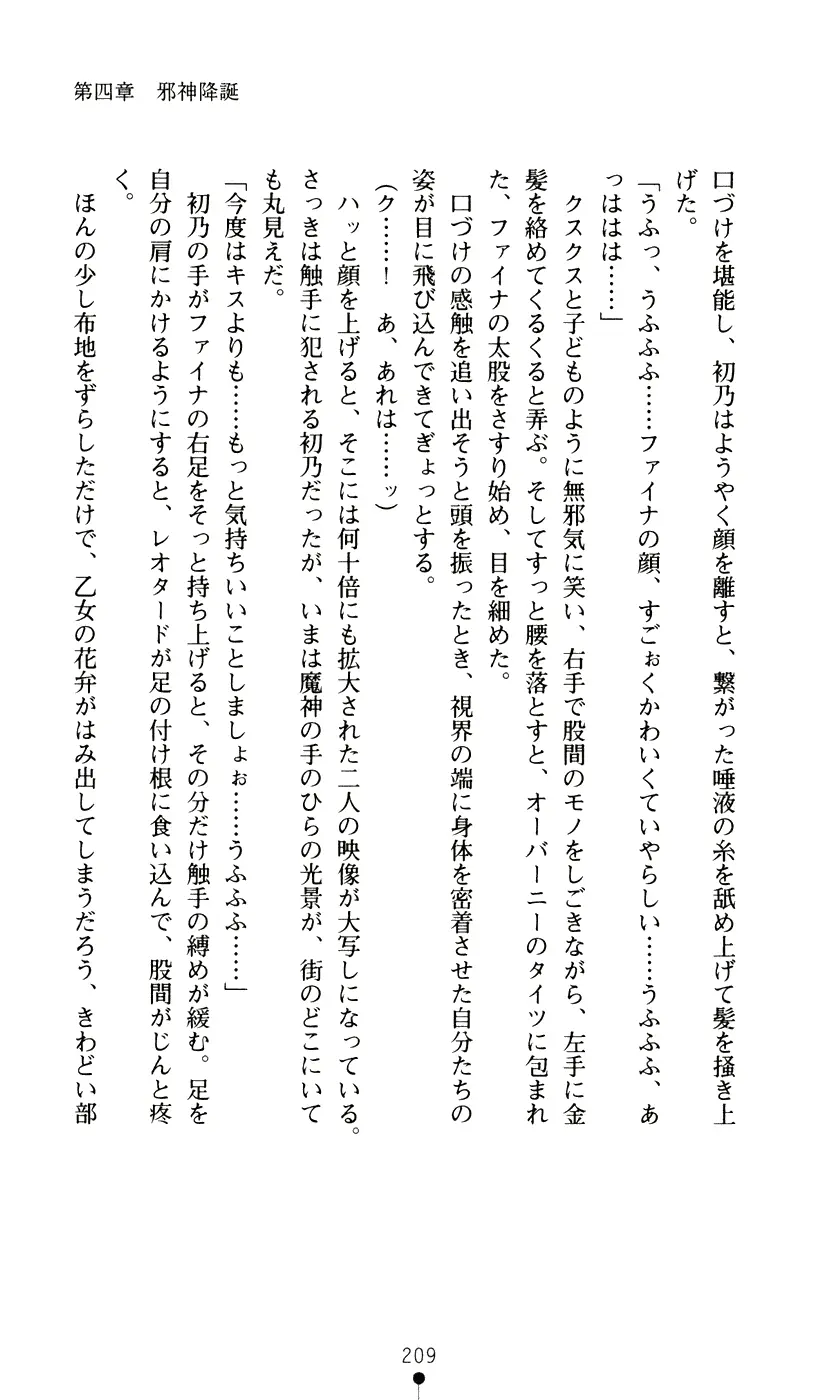 第四章　邪神降誕
口づけを堪能し、初乃はようやく顔を離すと、繋がった唾液の糸を舐め上げて髪を掻き上
げた。
「うふっ、うふふふ……ファイナの顔、すごぉくかわいくていやらしい……うふふふ、あ
っははは……」
　クスクスと子どものように無邪気に笑い、右手で股間のモノをしごきながら、左手に金
髪を絡めてくるくると弄ぶ。そしてすっと腰を落とすと、オーバーニーのタイツに包まれ
た、ファイナの太股をさすり始め、目を細めた。
　口づけの感触を追い出そうと頭を振ったとき、視界の端に身体を密着させた自分たちの
姿が目に飛び込んできてぎょっとする。
（ク……！　あ、あれは……ッ）
　ハッと顔を上げると、そこには何十倍にも拡大された二人の映像が大写しになっている。
さっきは触手に犯される初乃だったが、いまは魔神の手のひらの光景が、街のどこにいて
も丸見えだ。
「今度はキスよりも……もっと気持ちいいことしましょぉ……うふふふ……」
　初乃の手がファイナの右足をそっと持ち上げると、その分だけ触手の縛めが緩む。足を
自分の肩にかけるようにすると、レオタードが足の付け根に食い込んで、股間がじんと疼
く。
　ほんの少し布地をずらしただけで、乙女の花弁がはみ出してしまうだろう、きわどい部
209